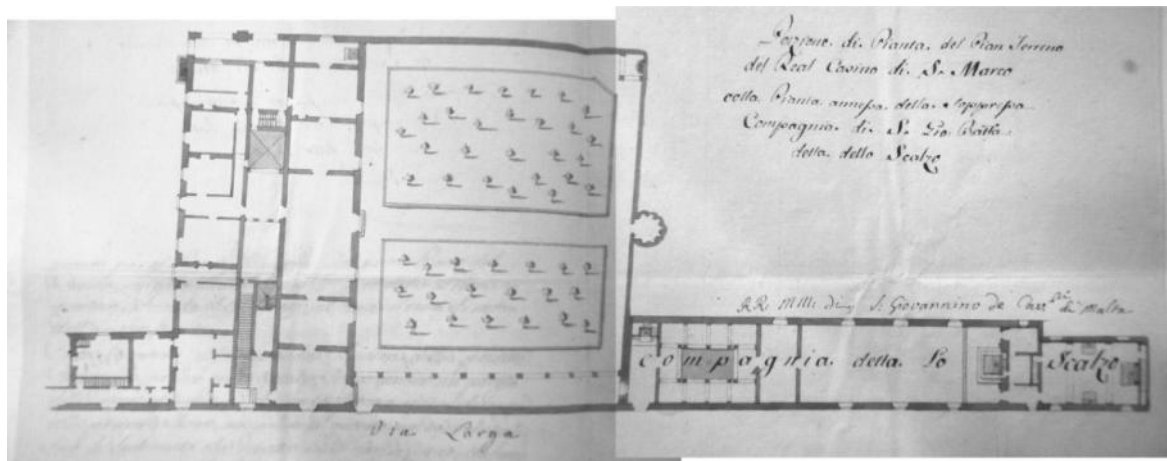 Porzione di Pianta del Pian Terreno
del Real Casino di S. Marco
colla Pianta annessa della soppressa
Compagnia di S. Gio Batta
detta dello Scalzo
RR. MM: di S. Giovannino de Cav.ri di Malta
Compagnia della Lo Scalzo
Via Larga